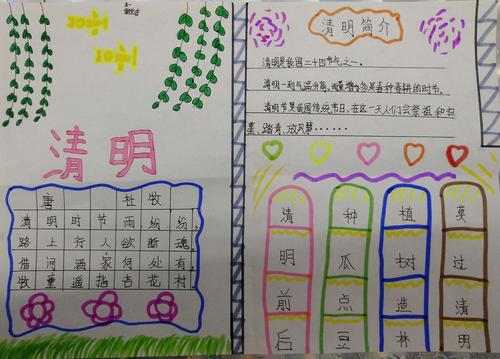 清明
唐 杜牧
清明时节雨纷纷,
路上行人欲断魂。
借问酒家何处有
牧童遥指杏花村
清明简介
清明是我国二十四节气之一。
清明一到气温升高,雨量增多是春种春耕的时节。
清明节是我国传统节日,在这一天人们会祭祖和扫
墓、踏青、放风筝······
清明前后
种瓜点豆
植树造林
莫过清明